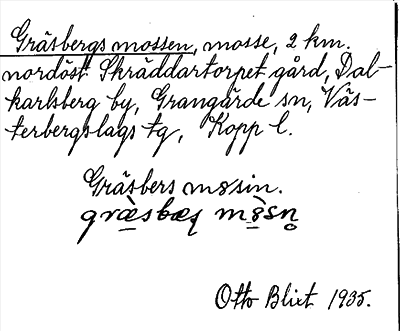 Gräsbergsmossen, mosse, 2 km.
nordöst Skräddartorpet gård, Dal-
karlsberg by, Grangärde sn, Väs-
terbergslags tg, Kopp l.
Gräsbers m8sin.
Otto Blixt 1935.